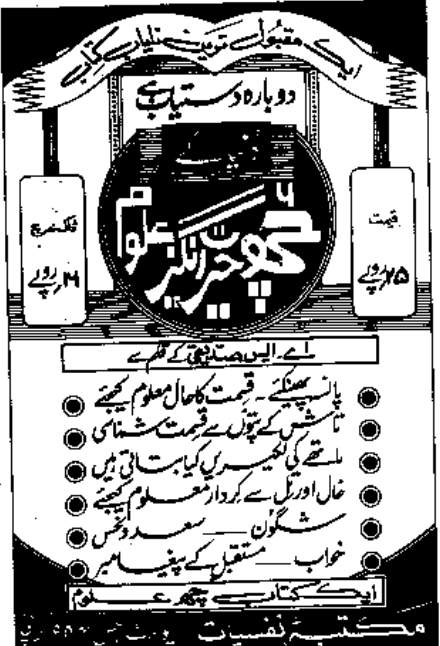 ایک مقبول ترین نایاب کتاب
دوبارہ دستیاب ہے
۶
چھ حیرت انگیز علوم
قیمت
۲۵ روپے
ڈاک خرچ
روپے
اے۔ ایس صدیقی کے قلم سے
پانسہ پھینکئے۔ قسمت کا حال معلوم کیجئے
تاش کے پتوں سے قسمت شناسی
ماتھے کی لکیریں کیا بتاتی ہیں
خال اور تل سے کردار معلوم کیجئے
شگون — سعد و نحس
خواب — مستقبل کے پیغیامبر
ایک کتاب چھ علوم
مکتبہ نفسیات